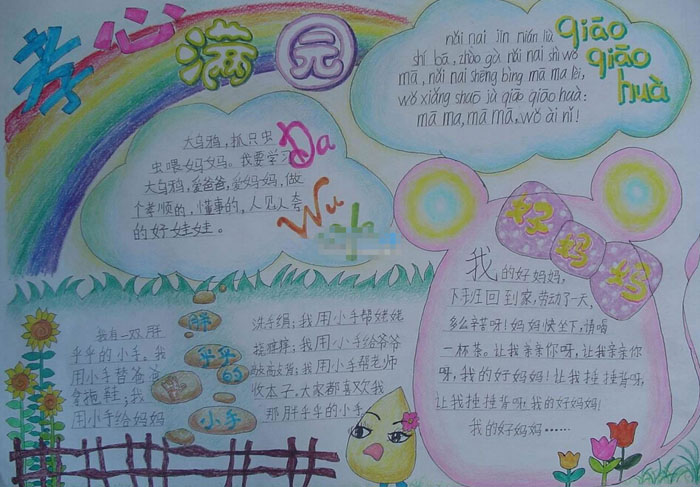 孝心满园
大乌鸦,抓只虫
虫喂妈妈。我要学习
大乌鸦,爱爸爸,爱妈妈,做
个孝顺的,懂事的,人见人夸
的好娃娃。
Da
Wu
qiāo
qiāo
huà
nǎi nai jīn nián liù
shí bā, zhào gù nǎi nai shì wǒ
mā, nǎi nai shēng bìng mā ma lèi,
wǒ xiǎng shuō jù qiāo qiāo huà:
mā ma, mā mā, wǒ ài nǐ!
好妈妈
我的好妈妈,
下班回到家,劳动了一天,
多么辛苦呀!妈妈快坐下,请喝
一杯茶。让我亲亲你呀,让我亲亲你
呀,我的好妈妈!让我捶捶背呀,
让我捶捶背呀我的好妈妈!
我的好妈妈……
胖
乎乎
的
小手
我有一双胖
乎乎的小手。我
用小手替爸爸
拿拖鞋;我
用小手给妈妈
洗手绢;我用小手帮姥姥
挠痒痒;我用小手给爷爷
敲敲背;我用小手帮老师
收本子,大家都喜欢我
那胖乎乎的小手。